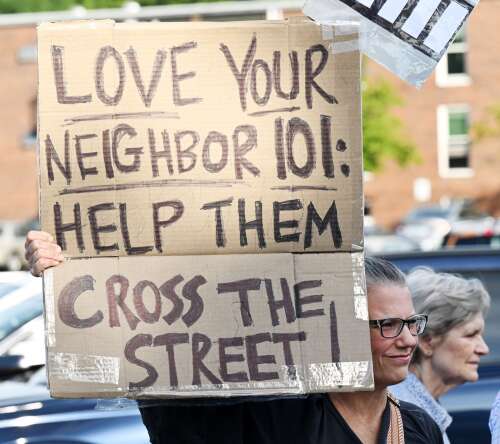 LOVE YOUR
NEIGHBOR 101:
HELP THEM
CROSS THE
STREET!